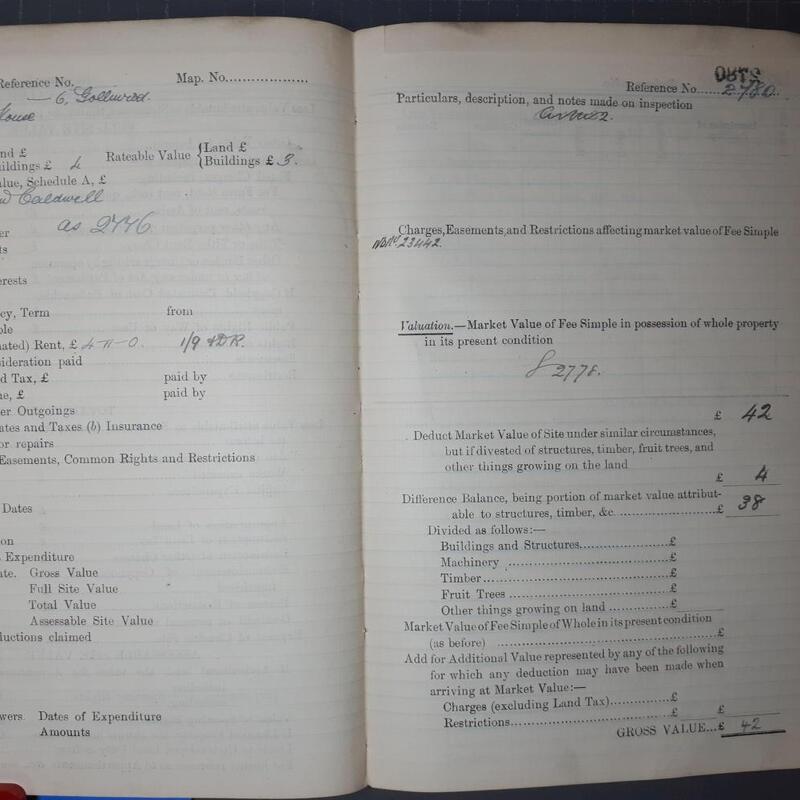 Reference No. Map. No...................
— 6, Gollinrod.
House
nd £
ildings £ 4 Rateable Value { Land £
Buildings £ 3.
alue, Schedule A, £
Caldwell
er as 2776
ts
erests
cy, Term from
ole
nated) Rent, £ 4-11-0. 1/9 & D.R.
sideration paid
d Tax, £ paid by
ne, £ paid by
er Outgoings
ates and Taxes (b) Insurance
or repairs
Easements, Common Rights and Restrictions
Dates
on
Expenditure
ate. Gross Value
Full Site Value
Total Value
Assessable Site Value
ductions claimed
wers. Dates of Expenditure
Amounts
2780
Reference No......2780...
Particulars, description, and notes made on inspection
Charges, Easements, and Restrictions affecting market value of Fee Simple
23442.
Valuation.—Market Value of Fee Simple in possession of whole property
in its present condition
2778.
£ 42
Deduct Market Value of Site under similar circumstances,
but if divested of structures, timber, fruit trees, and
other things growing on the land
£ 4
Difference Balance, being portion of market value attribut-
able to structures, timber, &c. .........................£ 38
Divided as follows:—
Buildings and Structures......................£
Machinery .......................................£
Timber.............................................£
Fruit Trees .......................................£
Other things growing on land ...............£
Market Value of Fee Simple of Whole in its present condition
(as before) .............................................£
Add for Additional Value represented by any of the following
for which any deduction may have been made when
arriving at Market Value:—
Charges (excluding Land Tax)...............£
Restrictions.......................................£ £
GROSS VALUE...£ 42